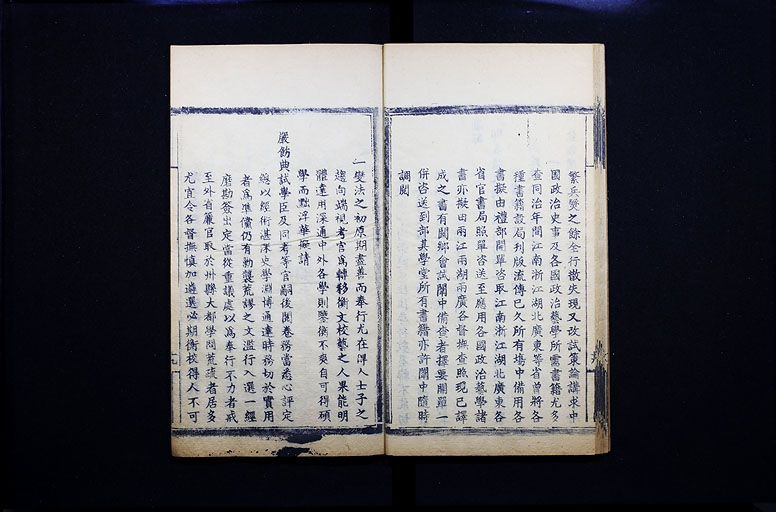 繁兵燹之餘全行散失現又改試策論講求中
國政治史事及各國政治藝學所需書籍尤多
查同治年間江南浙江湖北廣東等省曾將各
種書籍設局刊版流傳已久所有場中備用各
書擬由禮部開單咨取江南浙江湖北廣東各
省官書局照單咨送至應用各國政治藝學諸
書亦擬由兩江兩湖兩廣各督撫查照現已譯
成之書有關鄉會試闈中備查者擇要開單一
併咨送到部其學堂所有書籍亦許闈中隨時
調閱
一變法之初原期盡善而奉行尤在得人士子之
趨向端視考官為轉移衡文校藝之人果能明
體達用深通中外各學則鑒衡不爽自可得碩
學而黜浮華擬請
嚴飭典試學臣及同考等官嗣後閱卷務當悉心評定
總以經術湛深史學淵博通達時務切於實用
者為準儻仍有勦襲荒謬之文濫行入選一經
磨勘簽出定當從重議處以為奉行不力者戒
至外省簾官取於州縣大都學問荒疏者居多
尤宜令各督撫慎加遴選必期衡校得人不可